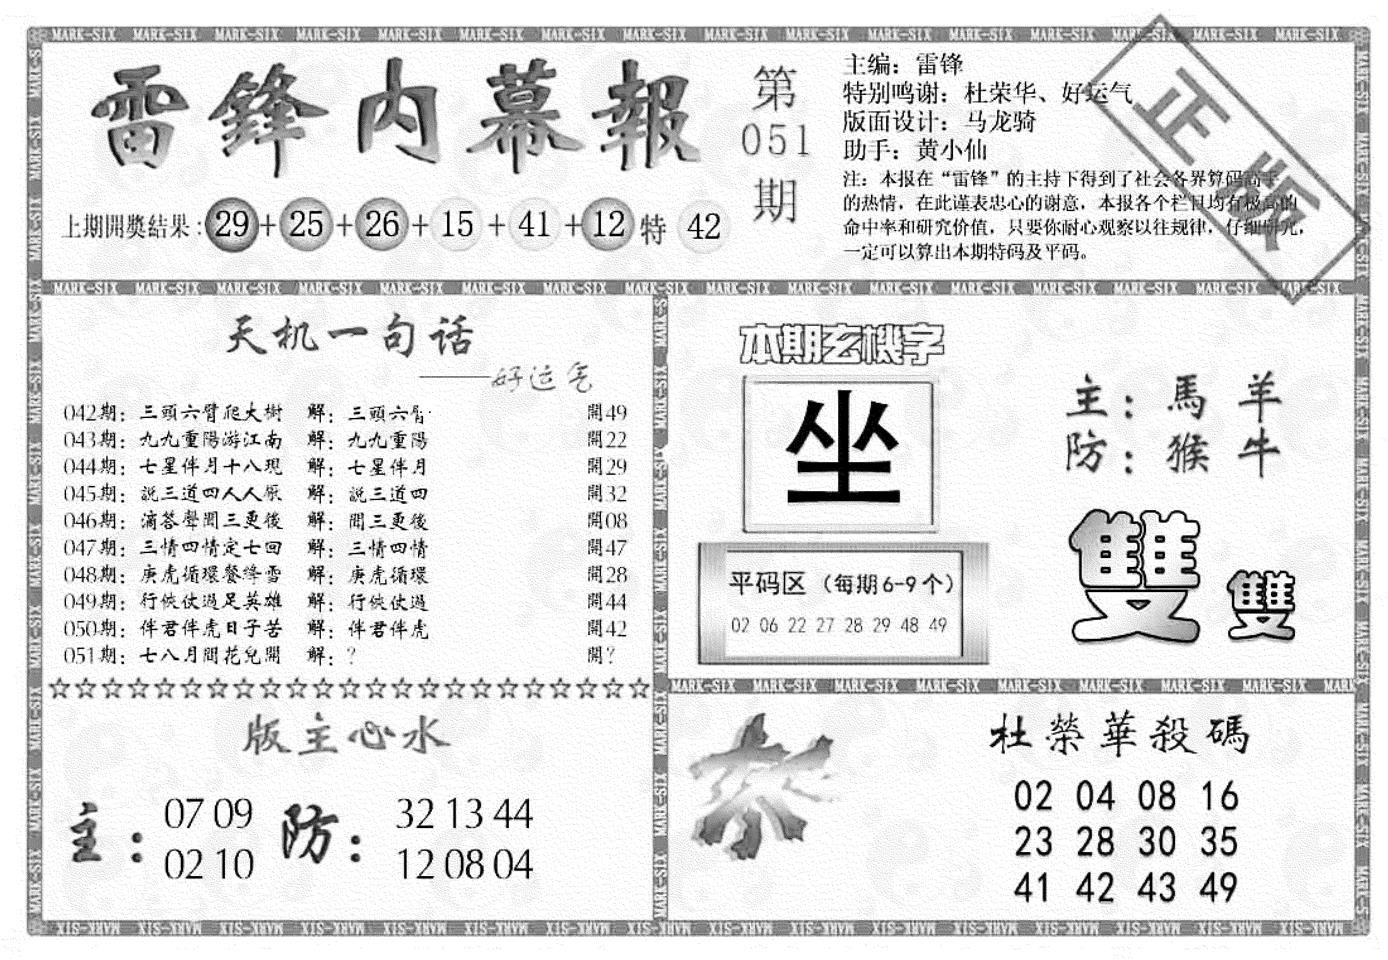 MARK-SIX MARK-SIX MARK-SIX MARK-SIX MARK-SIX MARK-SIX MARK-SIX MARK-SIX MARK-SIX MARK-SIX MARK-SIX MARK-SIX MARK-SIX MARK-SIX MARK-SIX MARK-SIX
雷鋒内幕報
第
051
期
主编：雷锋
特别鸣谢：杜荣华、好运气
版面设计：马龙骑
助手：黄小仙
注：本报在“雷锋”的主持下得到了社会各界算码高手
的热情，在此谨表忠心的谢意，本报各个栏目均有极高的
命中率和研究价值，只要你耐心观察以往规律，仔细研究，
一定可以算出本期特码及平码。
正版
上期開獎結果：29+25+26+15+41+12特 42
MARK-SIX MARK-SIX MARK-SIX MARK-SIX MARK-SIX MARK-SIX MARK-SIX MARK-SIX MARK-SIX MARK-SIX MARK-SIX MARK-SIX MARK-SIX MARK-SIX MARK-SIX MARK-SIX
天机一句话
——好运气
042期：三頭六臂爬大樹 解：三頭六臂 開49
043期：九九重陽游江南 解：九九重陽 開22
044期：七星伴月十八現 解：七星伴月 開29
045期：説三道四人人厭 解：説三道四 開32
046期：滴答聲聞三更後 解：聞三更後 開08
047期：三情四情定七回 解：三情四情 開47
048期：庚虎循環餐绛雪 解：庚虎循環 開28
049期：行俠仗過足英雄 解：行俠仗過 開44
050期：伴君伴虎日子苦 解：伴君伴虎 開42
051期：七八月間花兒開 解：？ 開?
☆☆☆☆☆☆☆☆☆☆☆☆☆☆☆☆☆☆☆☆☆☆☆
版主心水
主：
07 09
02 10
防：
32 13 44
12 08 04
本期玄機字
坐
平码区（每期6-9个）
02 06 22 27 28 29 48 49
主：馬 羊
防：猴 牛
雙 雙
MARK-SIX MARK-SIX MARK-SIX MARK-SIX MARK-SIX MARK-SIX MARK-SIX MARK-SIX MARK
杀
杜榮華殺碼
02 04 08 16
23 28 30 35
41 42 43 49